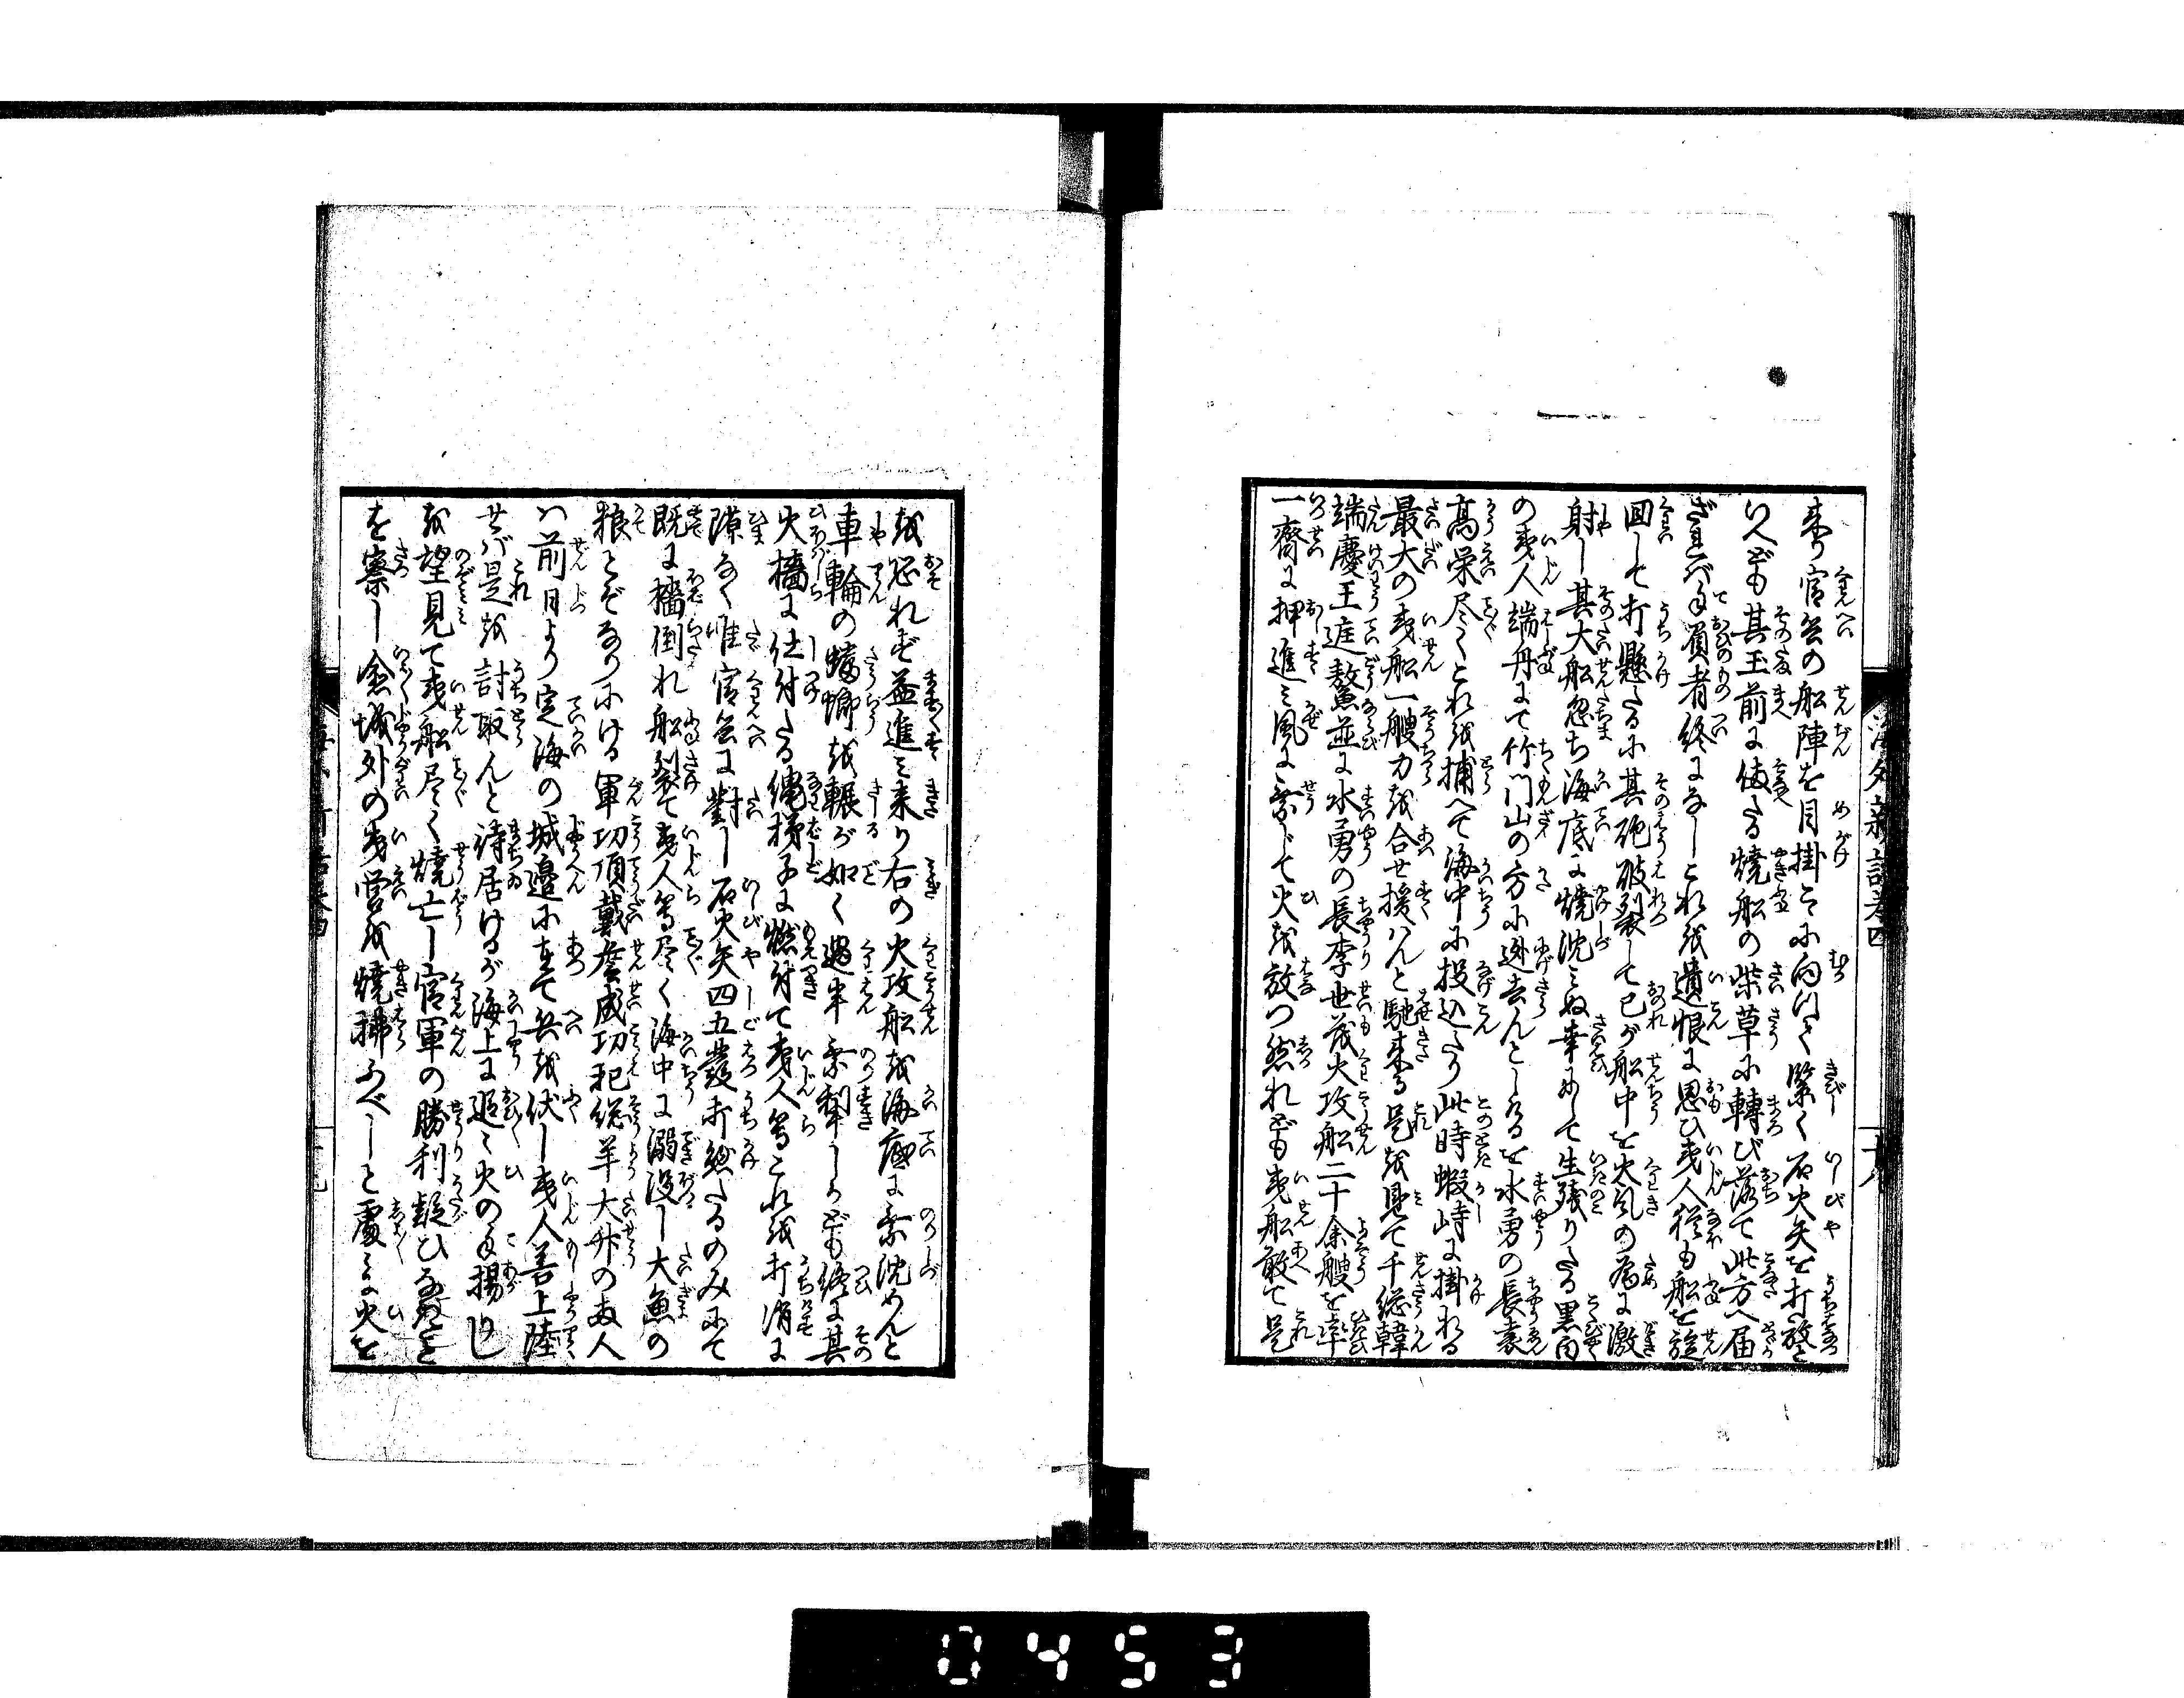 海外新話巻四
十八
来り官兵の船陣を目掛とに向ひく緊く石火矢を打發と
いへども其玉前に備たる焼船の柴草に轉び落て此方へ届
ざれバ手負者終になしこれを遺恨に思ひ夷人猶も船を旋
回して打懸たるに其砲破裂して已が船中を火気の為に激
射し其大船忽ち海底に焼沈ミぬ幸にして生残りたる黒白
の夷人端舟にて竹門山の方に逃去んとしけるを水勇の長袁
高栄尽くこれを捕へて海中に投込たり此時蝦峙に掛れる
最大の夷船一艘力を合せ援ハんと馳来る是を見て千総韓
端慶王進鰲並に水勇の長李世茂火攻船二十余艘を率
一齊に押進ミ風に乗じて火を放つ然れども夷船敢て是
を恐れず益進ミ来り右の火攻船を海底に乗沈めんと
車輪の蟷螂を轢が如く過半乗掣しかども終に其
火檣に仕付たる縄梯子に燃付て夷人等これを打消に
隙なく唯官兵に對し石火矢四五發打懸たるのみにて
既に檣倒れ船裂て夷人等尽く海中に溺没し大魚の
粮とぞなりにける軍功頂戴詹成功祀総羊大升の両人
ハ前日より定海の城邉に在て兵を伏し夷人若上陸
せバ是を討取んと待居けるが海上に追々火の手揚りし
を望見て夷船尽く焼亡し官軍の勝利疑ひなきと
を察し愈城外の夷営を焼拂ふべしと處々に火を
0453